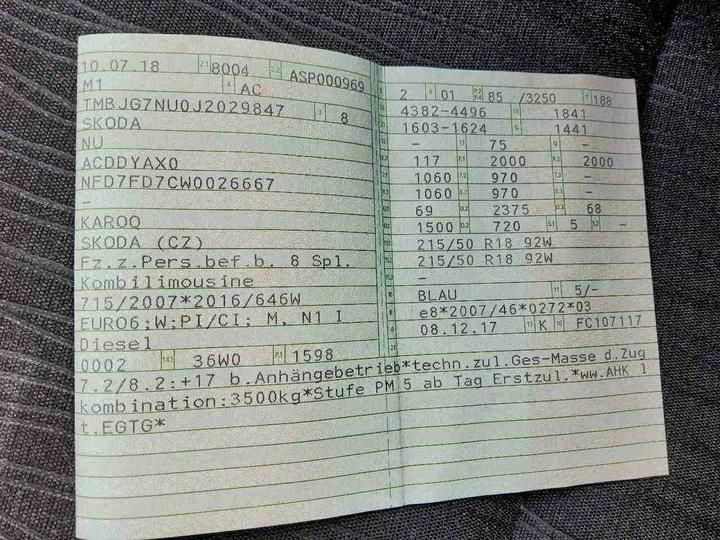 10.07.18 8004 ASP000969
M1 AC
TMBJG7NU0J2029847 8
SKODA
NU
ACDDYAX0
NFD7FD7CW0026667
-
KAROQ
SKODA (CZ)
Fz.z.Pers.bef.b. 8 Spl.
Kombilimousine
715/2007*2016/646W
EURO6;W;PI/CI; M, N1 I
Diesel
0002 36W0 1598
2 01 85 /3250 188
4382-4496 1841
1603-1624 1441
- 75 -
117 2000 2000
1060 970 -
1060 970 -
69 2375 68
1500 720 5 -
215/50 R18 92W
215/50 R18 92W
-
BLAU 5/-
e8*2007/46*0272*03
08.12.17 K FC107117
7.2/8.2:+17 b.Anhängebetrieb*techn.zul.Ges-Masse d.Zug
kombination:3500kg*Stufe PM 5 ab Tag Erstzul.*ww.AHK l
t.EGTG*